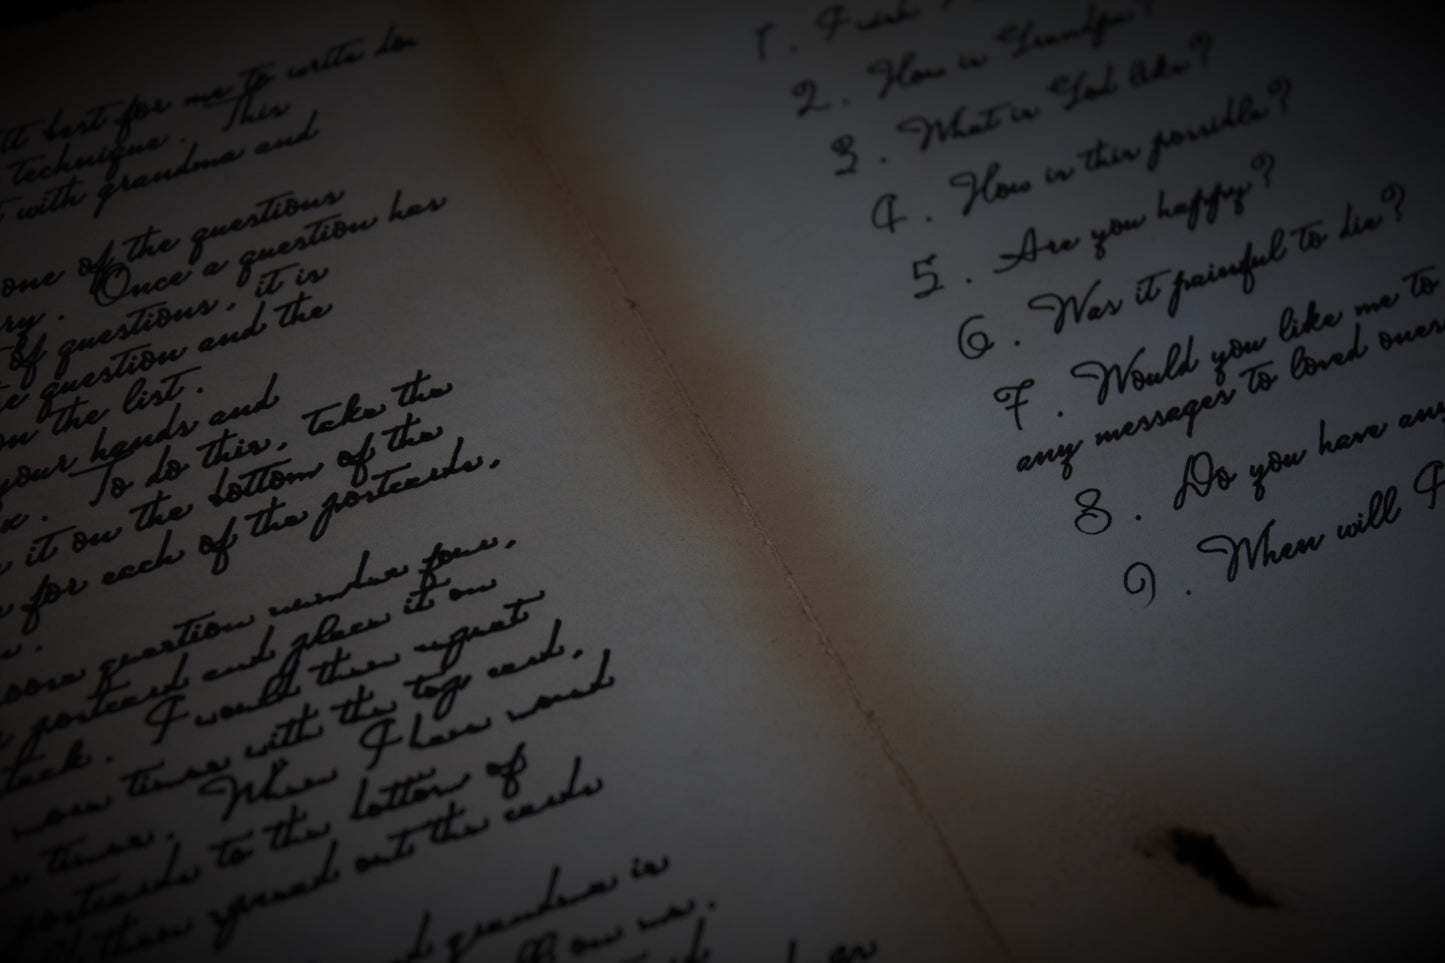 it best for me to write
technique. This
with grandma and
one of the questions
Once a question has
of questions, it is
question and the
on the list.
your hands and
To do this, take the
it on the bottom of the
for each of the postcards,
question number four,
postcard and place it on
I would then repeat
more times with the top card,
times. When I have moved
postcards to the bottom of
spread out the cards
grandma is
1.
2. How is Grandpa?
3. What is God like?
4. How is this possible?
5. Are you happy?
6. Was it painful to die?
7. Would you like me to
any messages to loved ones
8. Do you have any
9. When will I